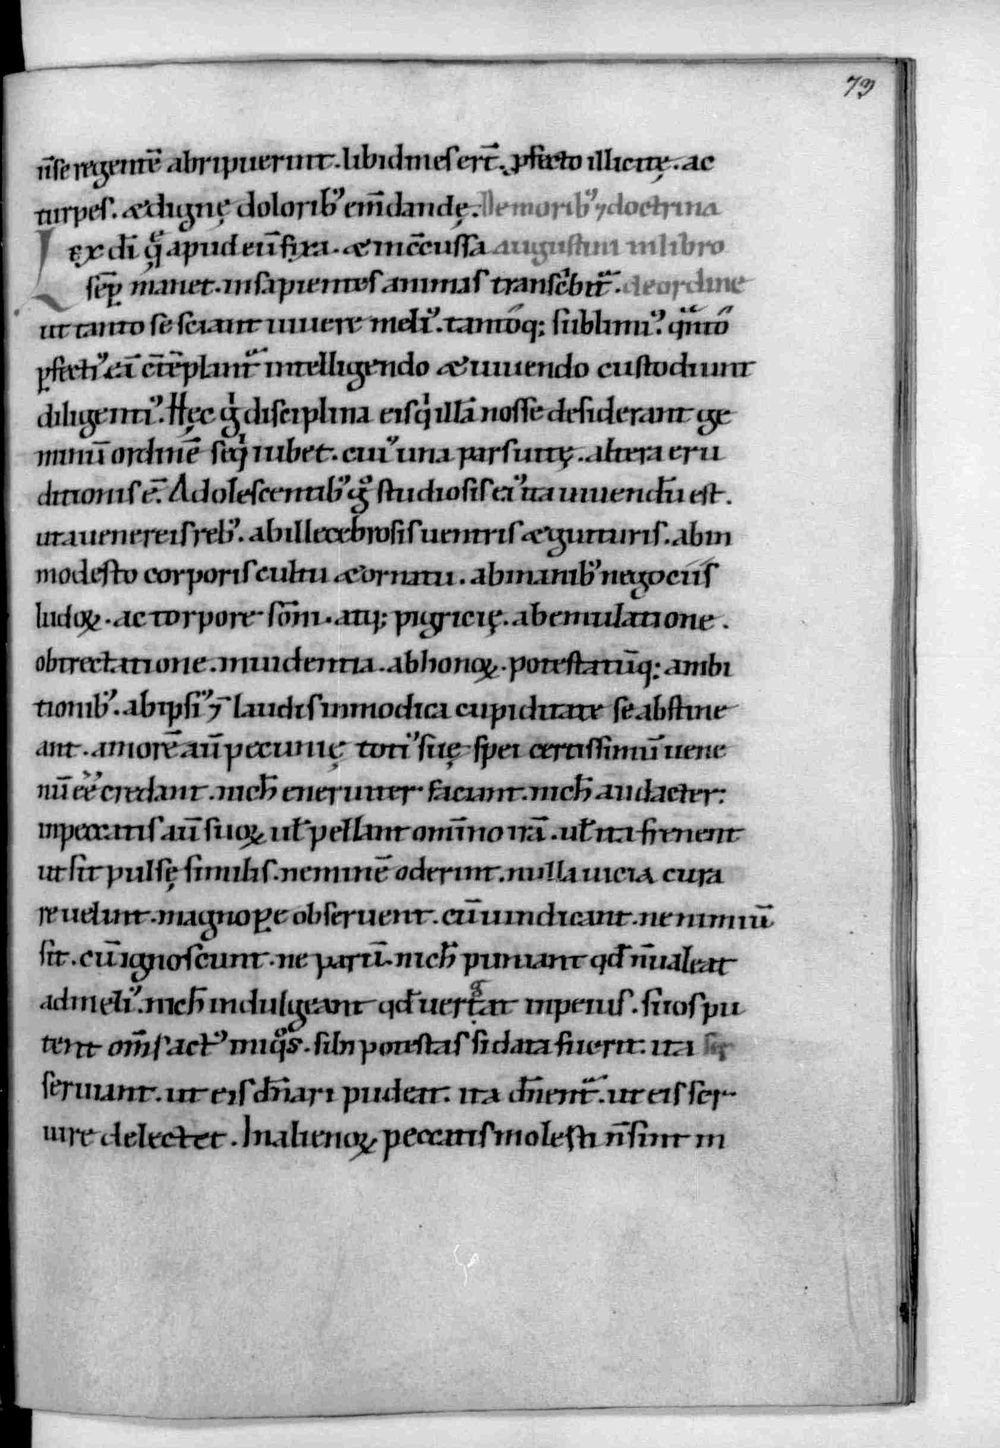 73
n̄ se regentē abripuerint. libidines ert̄. ꝓfecto illicitę. ac
turpes. & dignę dolorib᾽ em̄dandę. De morib᾽ ⁊ doctrina
Lex dī q̄ apud eū fixa. & incc̄ussa augustini in libro
sēp manet. in sapientes animas transc̔bit᷑. de ordine
ut tanto se sciant uiuere meli᾽. tantoq; sublimi᾽. qͣnto
ꝑfecti᾽ eā cōtēplant᷑ intelligendo & uiuendo custodiunt
diligenti᾽. Hęc g̊ disciplina eis qͥ illā nosse desiderant ge
minū ordinē seqͥ iubet. cui᾽ una pars uitę. altera eru
ditionis ē. Adolescentib᾽ g̊ studiosis ei᾽ ita uiuendū est.
ut a uenereis reb᾽. ab illecebrosis uentris & gutturis. ab in
modesto corporis cultu & ornatu. ab inanib᾽ negociis
ludoꝝ. ac torpore som̄i. atq; pigricię. ab emulatione.
obtrectatione. inuidentia. ab honoꝝ. potestatūq; ambi
tionib᾽. ab ipsi᾽ ⁊̄ laudis inmodica cupiditate se abstine
ant. amorē aū pecunię toti᾽ suę spei certissimū uene
nū ēē credant. nich̄ eneruiter faciant. nich̄ audacter:
in peccatis aū suoꝝ ut̄ pellant omīno irā. ut̄ ita frenent
ut sit pulsę similis. neminē oderint. nulla uicia cura
re uelint. magnopꝑe obseruent. cū uindicant. ne nimiū
sit. cū ignoscunt. ne parū. nich̄ puniant qđ n̄ ualeat
ad meli᾽. nich̄ indulgeant qđ uertat in peius. suos pu
tent om̄s. act᾽ in qͦs. sibi potestas si data fuerit. ita ser
seruiant. ut eis dn̄ari pudeat. ita dn̄ent᷑. ut eis ser-
uire delectet. In alienoꝝ peccatis molesti n̄ sint in